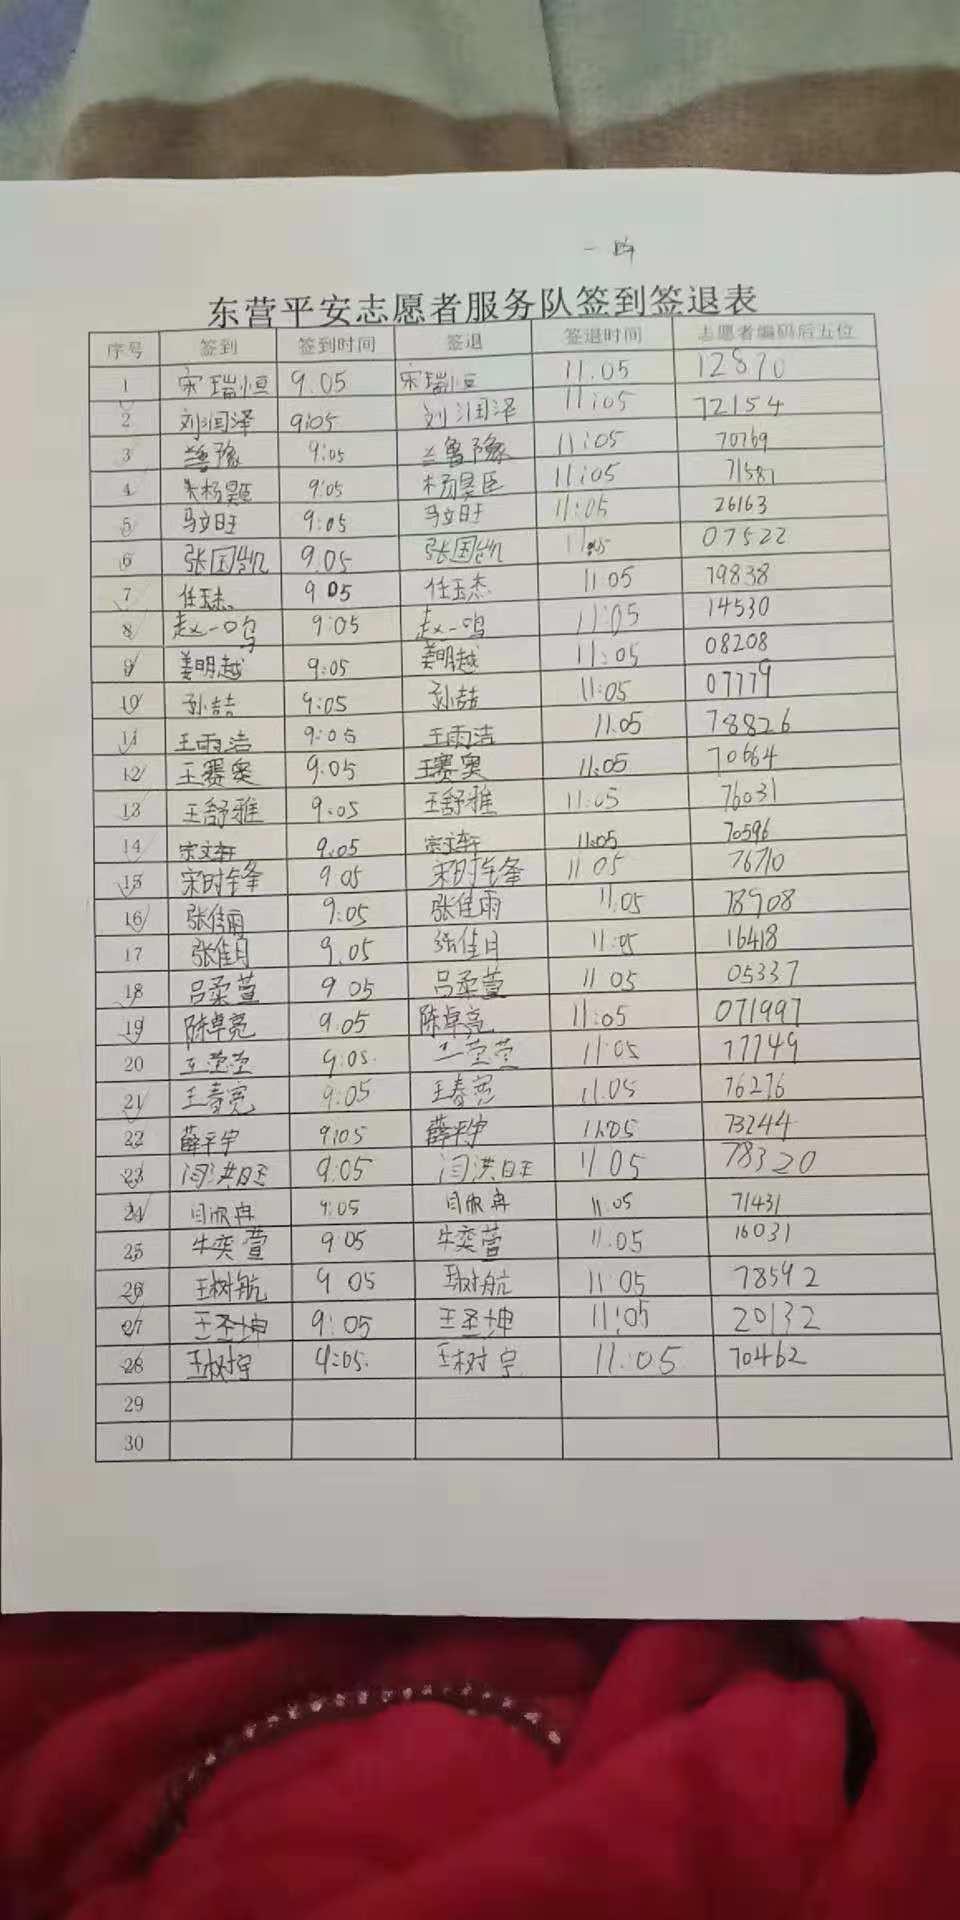 东营平安志愿者服务队签到签退表
序号 签到 签到时间 签退 签退时间 志愿者编码后五位
1 宋瑞恒 9.05 宋瑞恒 11.05 12870
2 刘润泽 9:05 刘润泽 11:05 72154
3 9:05 兰鲁豫 11:05 70769
4 9:05 杨昊臣 11:05 71581
5 马立旺 9:05 马立旺 11:05 26163
6 张国凯 9.05 张国凯 11:05 07522
7 任玉杰 9 05 任玉杰 11 05 79838
8 赵一鸣 9:05 赵一鸣 11:05 14530
9 姜明越 9:05 姜明越 11:05 08208
10 孙喆 9:05 孙喆 11:05 07779
11 王雨洁 9:05 王雨洁 11.05 78826
12 王赛奥 9:05 王赛奥 11:05 70664
13 王舒雅 9.05 王舒雅 11:05 76031
14 宗文轩 9.05 宗文轩 11:05 70596
15 宋时锋 9 05 宋时锋 11 05 76710
16 张佳雨 9:05 张佳雨 11.05 78908
17 张佳月 9.05 张佳月 11:05 16418
18 吕柔萱 9 05 吕柔萱 11 05 05337
19 陈卓亮 9:05 陈卓亮 11:05 071997
20 9:05. 11:05 77749
21 王春亮 9:05 王春亮 11.05 76276
22 薛平宇 9:05 薛平宇 11:05 73244
23 闫洪旺 9:05 闫洪旺 11 05 78320
24 闫欣冉 9:05 闫欣冉 11.05 71431
25 牛奕萱 9 05 牛奕萱 11.05 16031
26 王树航 9 05 王树航 11:05 78592
27 王圣坤 9:05 王圣坤 11:05 20132
28 王树宇 9:05. 王树宇 11:05 70462
29
30